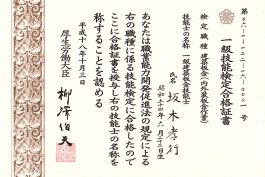 第０６－１－１２２－１２－０００１号
一級技能検定合格証書
検定職種 建築板金(内外装板金作業)
技能士の名称 一級建築板金技能士
氏名 坂木孝行
昭和三十四年八月二十三日生
あなたは職業能力開発促進法の規定による
右の職種に係る技能検定に合格したので
ここに合格証書を授与し右の技能士の名称を
称することを認める
平成十八年十月三日
厚生労働大臣 柳澤伯夫